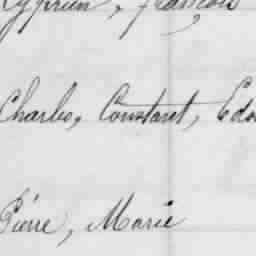 Cyprien, François
Charles, Constant, Edo
Pierre, Marie